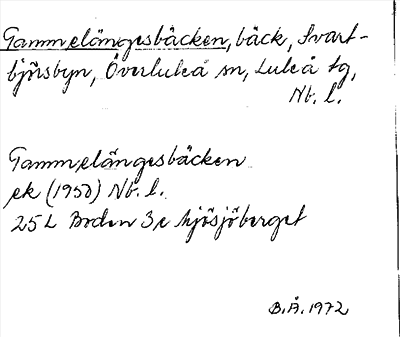 Gammelängesbäcken, bäck, Svart-
björsbyn, Överluleå sn, Luleå tg,
Nb. l.
Gammelängesbäcken
ek (1950) Nb. l.
25 L Boden 3 e Mjösjöberget
B.Å. 1972